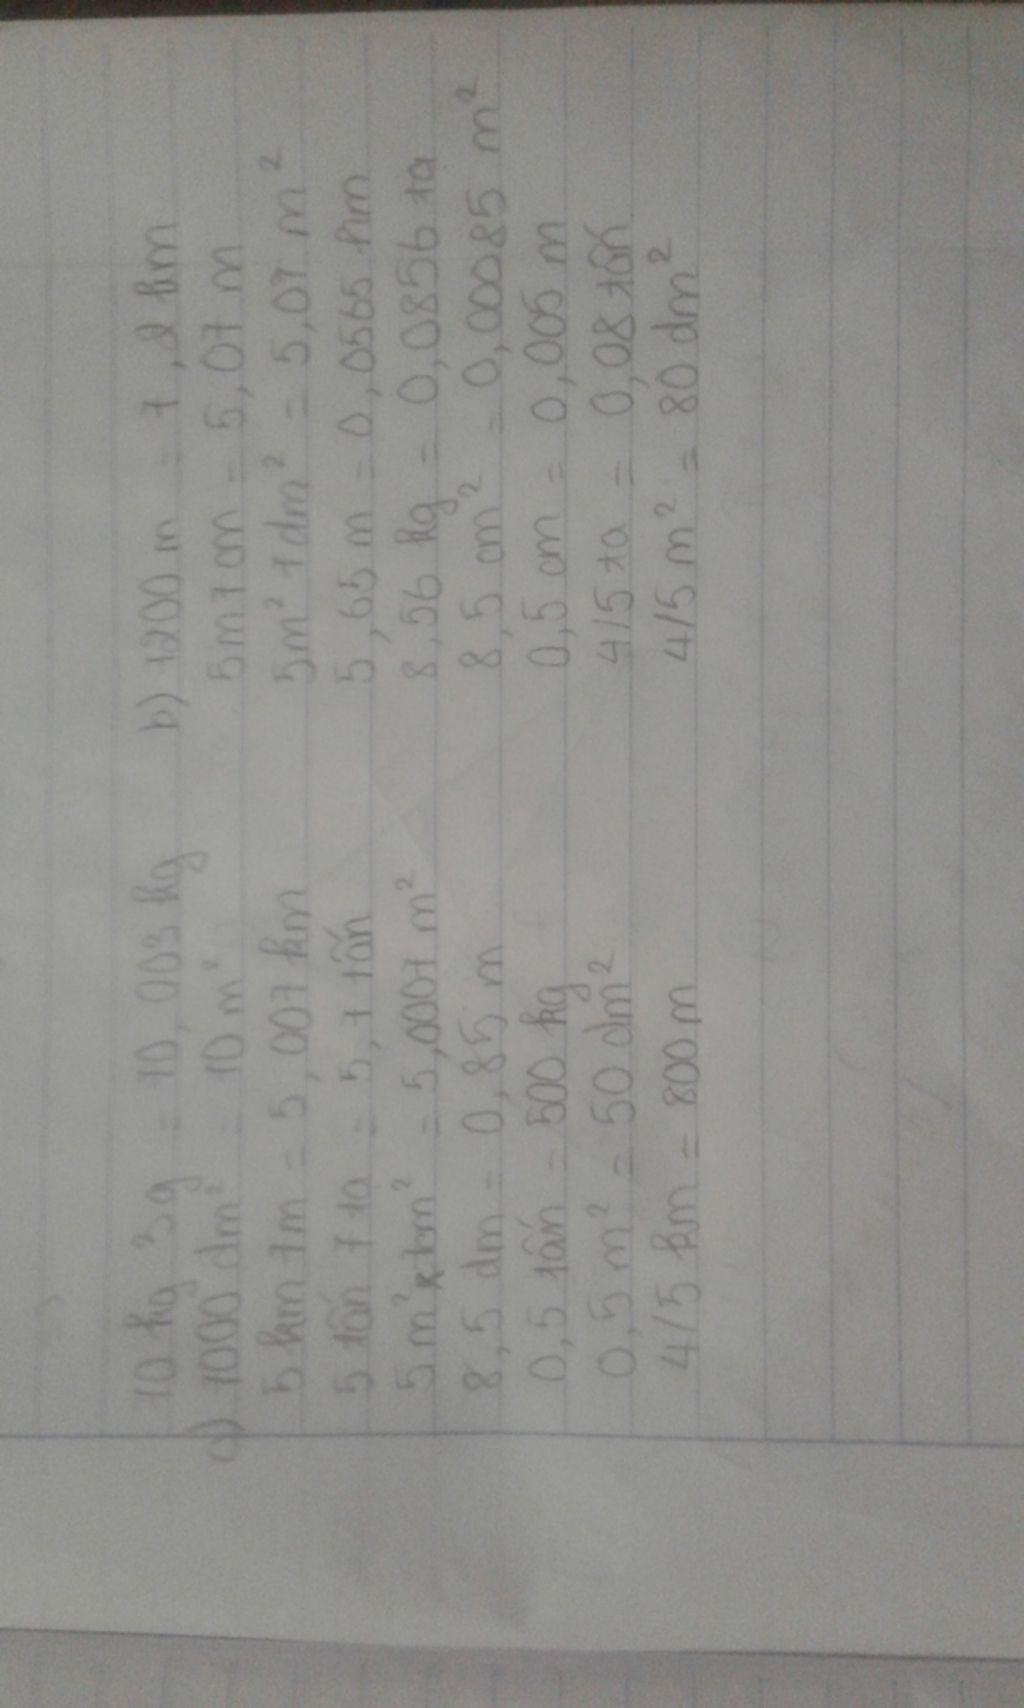 10 kg 3g = 10,003 kg
a) 1000 dm² = 10 m²
5 km 7m = 5,007 km
5 tấn 7 ta = 5,7 tấn
5m² 7cm² = 5,0007 m²
8,5 dm = 0,85 m
0,5 tấn = 500 kg
0,5 m² = 50 dm²
4/5 km = 800 m
b) 1200 m = 1,2 km
5m7cm = 5,07 m
5m² 7dm² = 5,07 m²
5,65 m = 0,0565 hm
8,56 kg = 0,0856 ta
8,5 cm² = 0,00085 m²
0,5 cm = 0,005 m
4/5 ta = 0,08 tấn
4/5 m² = 80 dm²